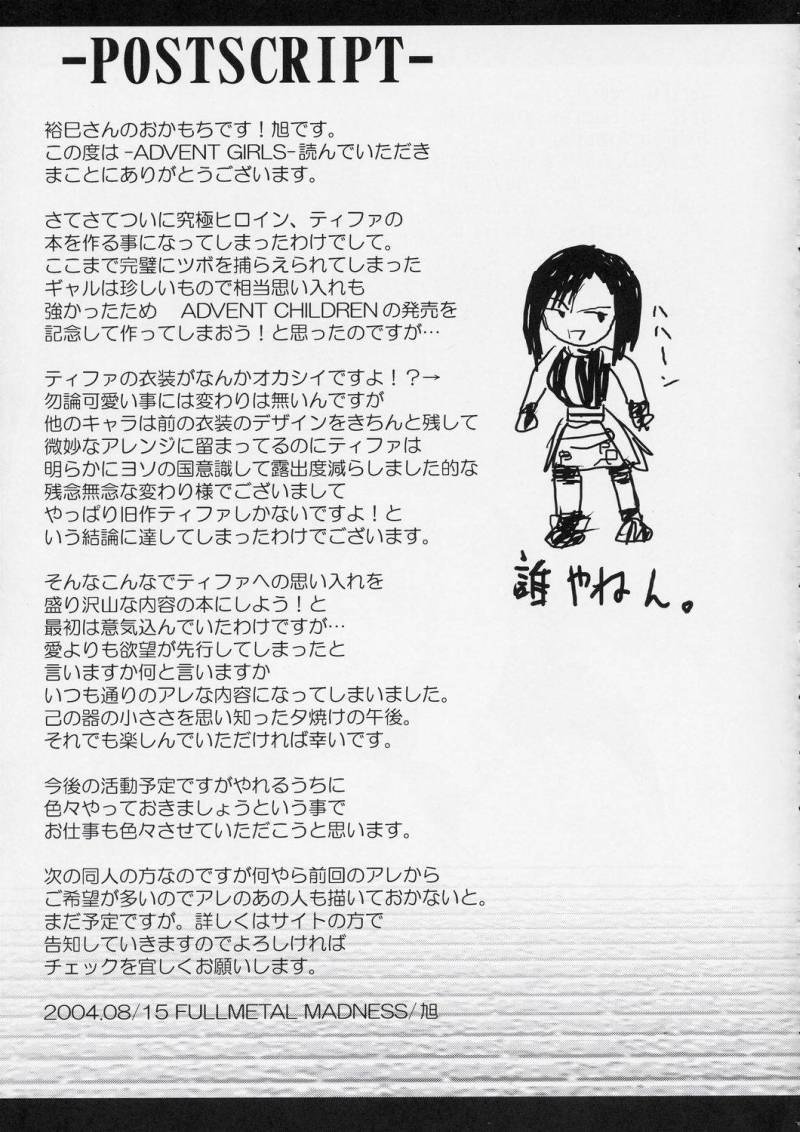 -POSTSCRIPT-
裕巳さんのおかもちです！旭です。
この度は-ADVENT GIRLS-読んでいただき
まことにありがとうございます。
さてさてついに究極ヒロイン、ティファの
本を作る事になってしまったわけでして。
ここまで完璧にツボを捕らえられてしまった
ギャルは珍しいもので相当思い入れも
強かったため　ADVENT CHILDRENの発売を
記念して作ってしまおう！と思ったのですが…
ティファの衣装がなんかオカシイですよ！？→
勿論可愛い事には変わりは無いんですが
他のキャラは前の衣装のデザインをきちんと残して
微妙なアレンジに留まってるのにティファは
明らかにヨソの国意識して露出度減らしました的な
残念無念な変わり様でございまして
やっぱり旧作ティファしかないですよ！と
いう結論に達してしまったわけでございます。
そんなこんなでティファへの思い入れを
盛り沢山な内容の本にしよう！と
最初は意気込んでいたわけですが…
愛よりも欲望が先行してしまったと
言いますか何と言いますか
いつも通りのアレな内容になってしまいました。
己の器の小ささを思い知った夕焼けの午後。
それでも楽しんでいただければ幸いです。
今後の活動予定ですがやれるうちに
色々やっておきましょうという事で
お仕事も色々させていただこうと思います。
次の同人の方なのですが何やら前回のアレから
ご希望が多いのでアレのあの人も描いておかないと。
まだ予定ですが。詳しくはサイトの方で
告知していきますのでよろしければ
チェックを宜しくお願いします。
2004.08/15 FULLMETAL MADNESS/旭
ハハーン
誰やねん。